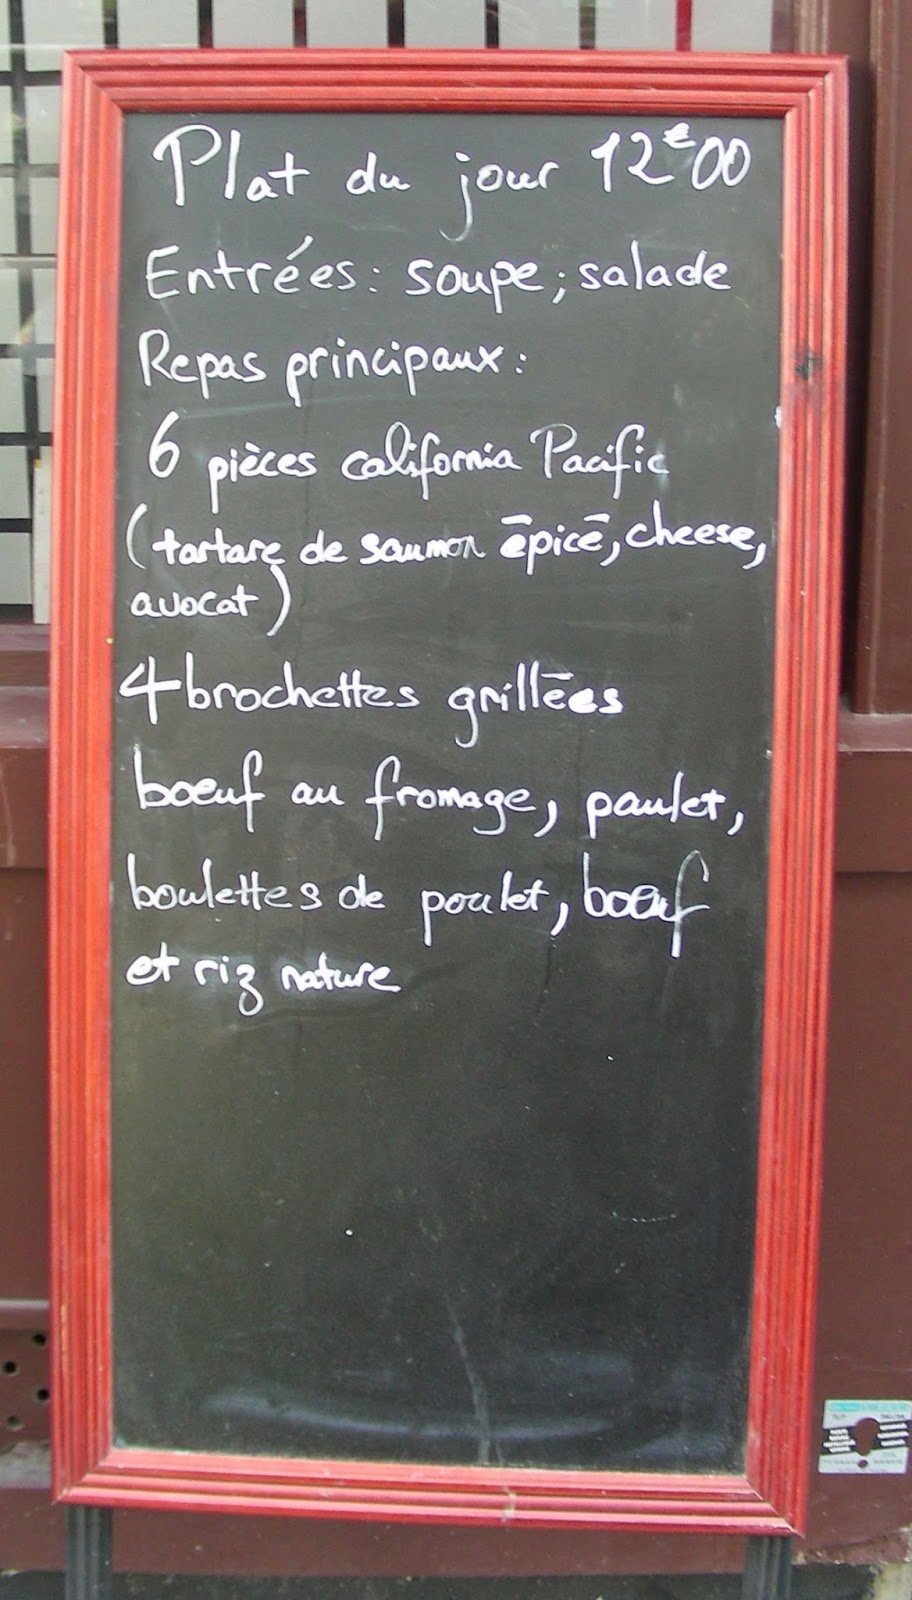 Plat du jour 12€00
Entrées : soupe ; salade
Repas principaux :
6 pièces california Pacific
(tartare de saumon épicé, cheese,
avocat)
4 brochettes grillées
boeuf au fromage, poulet,
boulettes de poulet, boeuf
et riz nature